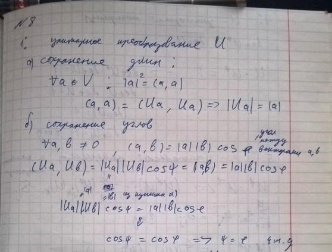 №8
унитарное преобразование U
а) сохранение длин :
∀a ∈ V : |a|² = (a, a)
(a, a) = (Ua, Ua) => |Ua| = |a|
б) сохранение углов
∀a, b ≠ 0 , (a, b) = |a| |b| cos φ угол между векторами a, b
(Ua, Ub) = |Ua| |Ub| cos ψ = (a, b) = |a| |b| cos φ
|a| |b| из пункта а)
|Ua| |Ub| cos ψ = |a| |b| cos φ
cos ψ = cos φ => ψ = φ ч.т.д